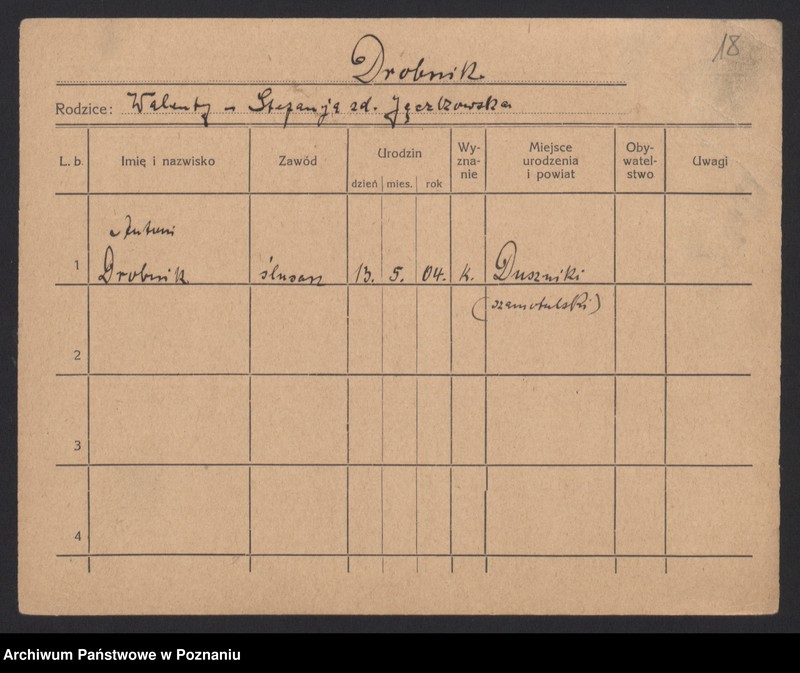 18
Drobnik
Rodzice: Walenty Stefanja zd.
L. b. Imię i nazwisko Zawód Urodzin dzień mies. rok Wy-zna-nie Miejsce urodzenia i powiat Oby-watel-stwo Uwagi
Antoni
1 Drobnik ślusarz 13. 5. 04. k. Duszniki
(szamotulski)
2
3
4
Archiwum Państwowe w Poznaniu